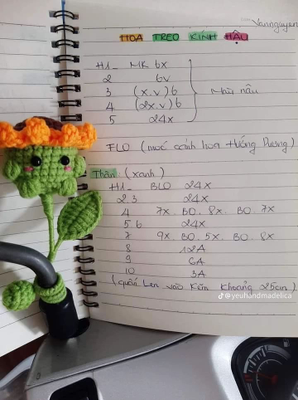 Vannguyen
HOA TREO KÍNH HẬU
H1_ MK 6x
2 6v
3 (x.v)6
4 (2x.v)6
5 24x
Màu nâu
FLO (móc cánh hoa Hướng Dương)
Thân (xanh)
H1_ BLO 24x
2.3 24x
4 7x. BO. 8x. BO. 7x
5.6 24x
7 9x. BO. 5x. BO. 8x
8 12A
9 6A
10 3A
(quấn Len vào Kẽm Khoảng 25cm)
@yeuhandmadelica